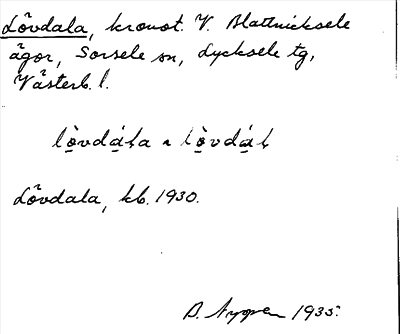 Lövdala, kronot. V. Blattnicksele
ägor, Sorsele sn, Lycksele tg,
Västerb. l.
lò̱vdá̱la ~ lò̱vdá̱l
Lövdala, kb. 1930.
1935.